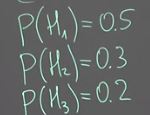 P(H₁)=0.5
P(H₂)=0.3
P(H₃)=0.2